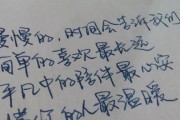 慢慢的，时间会告诉我们
简单的喜欢最长远
平凡中的陪伴最心安
懂你的人最温暖